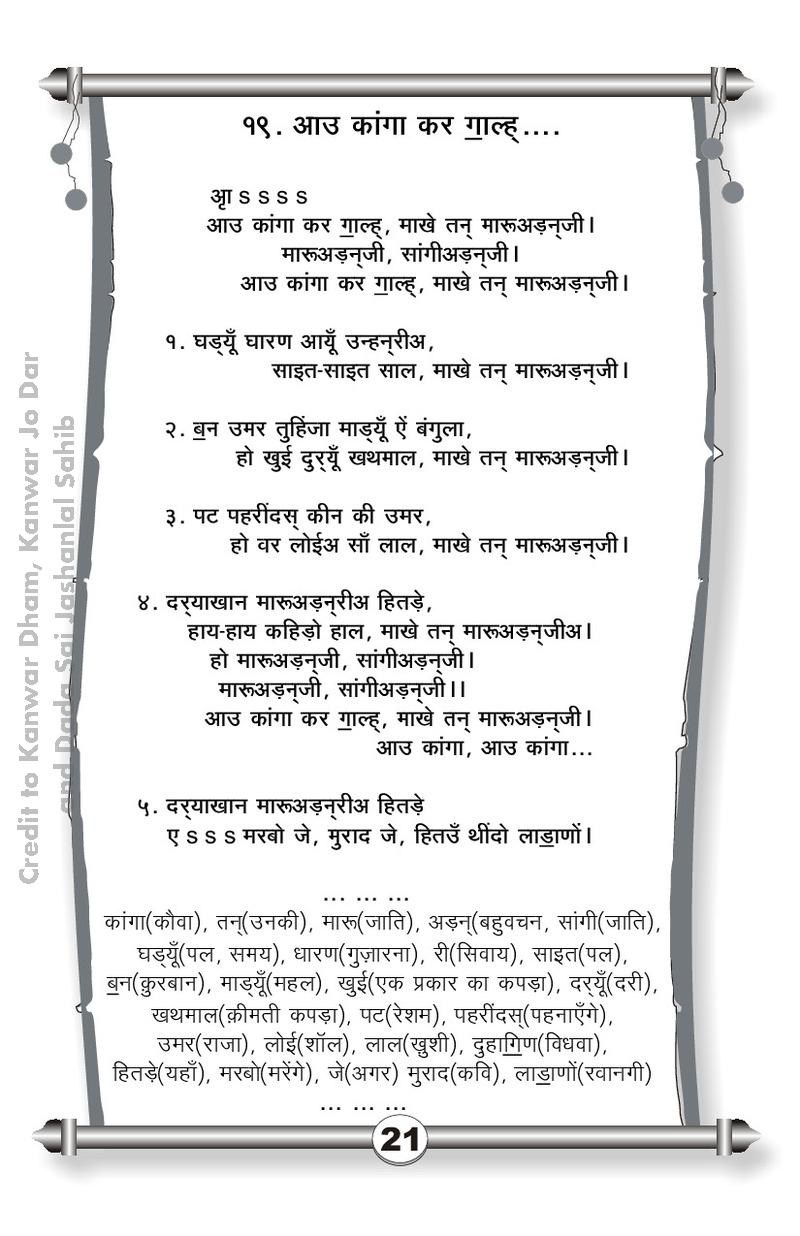 १९. आउ कांगा कर ग॒ाल्ह्....
आ॒ s s s s
आउ कांगा कर ग॒ाल्ह्, माखे तन् मारूअड़न्‌जी।
मारूअड़न्‌जी, सांगीअड़न्‌जी।
आउ कांगा कर ग॒ाल्ह्, माखे तन् मारूअड़न्‌जी।
१. घड्‌यूँ घारण आयूँ उन्हन्‌रीअ,
साइत-साइत साल, माखे तन् मारूअड़न्‌जी।
२. ब॒न उमर तुहिंजा माड्‌यूँ ऐं बंगुला,
हो खुई दुर्‌यूँ खथमाल, माखे तन् मारूअड़न्‌जी।
३. पट पहरींदस् कीन की उमर,
हो वर लोईअ साँ लाल, माखे तन् मारूअड़न्‌जी।
४. दर्‌याखान मारूअड़न्‌रीअ हितड़े,
हाय-हाय कहिड़ो हाल, माखे तन् मारूअड़न्‌जीअ।
हो मारूअड़न्‌जी, सांगीअड़न्‌जी।
मारूअड़न्‌जी, सांगीअड़न्‌जी।।
आउ कांगा कर ग॒ाल्ह्, माखे तन् मारूअड़न्‌जी।
आउ कांगा, आउ कांगा...
५. दर्‌याखान मारूअड़न्‌रीअ हितड़े
ए s s s मरबो जे, मुराद जे, हितउँ थींदो लाड॒ाणों।
... ... ...
कांगा(कौवा), तन्(उनकी), मारू(जाति), अड़न्(बहुवचन, सांगी(जाति),
घड्‌यूँ(पल, समय), धारण(गुज़ारना), री(सिवाय), साइत(पल),
ब॒न(क़ुरबान), माड्‌यूँ(महल), खुई(एक प्रकार का कपड़ा), दर्‌यूँ(दरी),
खथमाल(क़ीमती कपड़ा), पट(रेशम), पहरींदस्(पहनाएँगे),
उमर(राजा), लोई(शॉल), लाल(खुशी), दुहागि॒ण(विधवा),
हितड़े(यहाँ), मरबो(मरेंगे), जे(अगर) मुराद(कवि), लाड॒ाणों(रवानगी)
... ... ...
21
Credit to Kanwar Dham, Kanwar Jo Dar
and Dada Sai Jashanlal Sahib